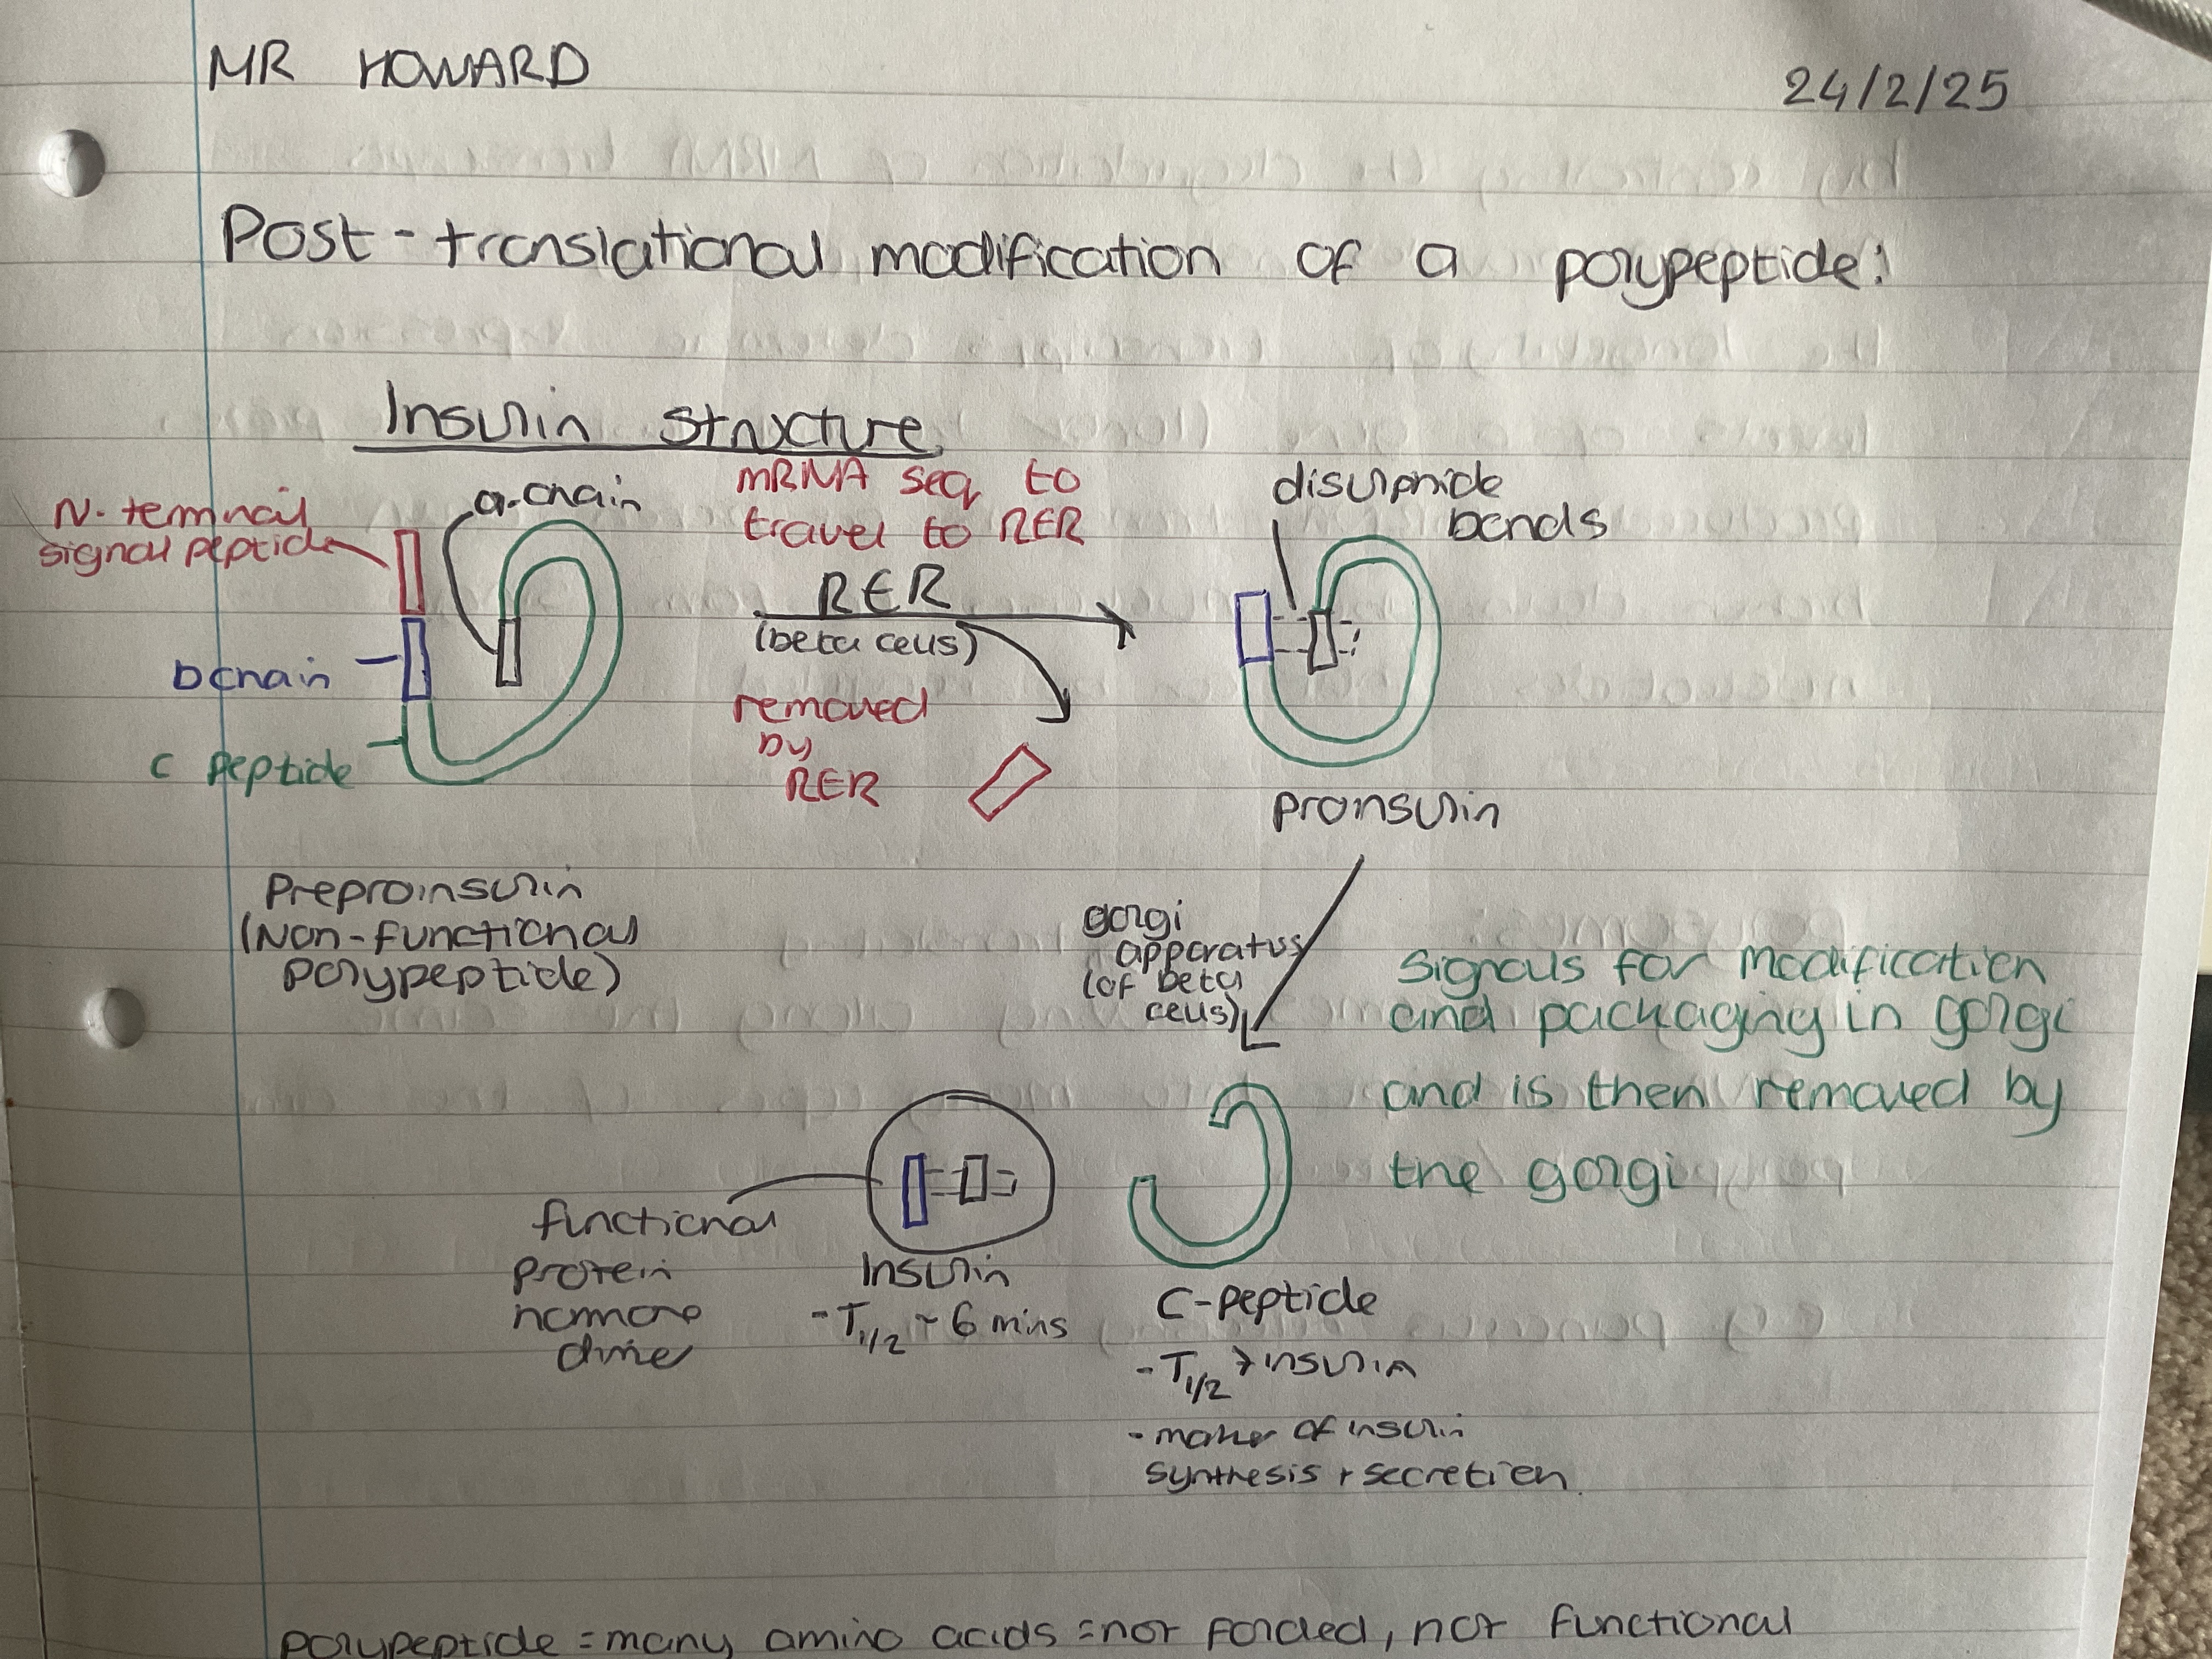 MR HOWARD
24/2/25
Post-translational modification of a polypeptide:
Insulin Structure
N-terminal
signal peptide
a-chain
b chain
C peptide
mRNA seq to
travel to RER
RER
(beta cells)
removed
by
RER
disulphide
bonds
proinsulin
Preproinsulin
(Non-functional
polypeptide)
golgi
apparatus
(of beta
cells)
Signals for modification
and packaging in golgi
and is then removed by
the golgi
functional
protein
hormone
Insulin
-T1/2 ~ 6 mins
C-peptide
-T1/2 > insulin
- marker of insulin
synthesis + secretion.
polypeptide = many amino acids = not folded, not functional